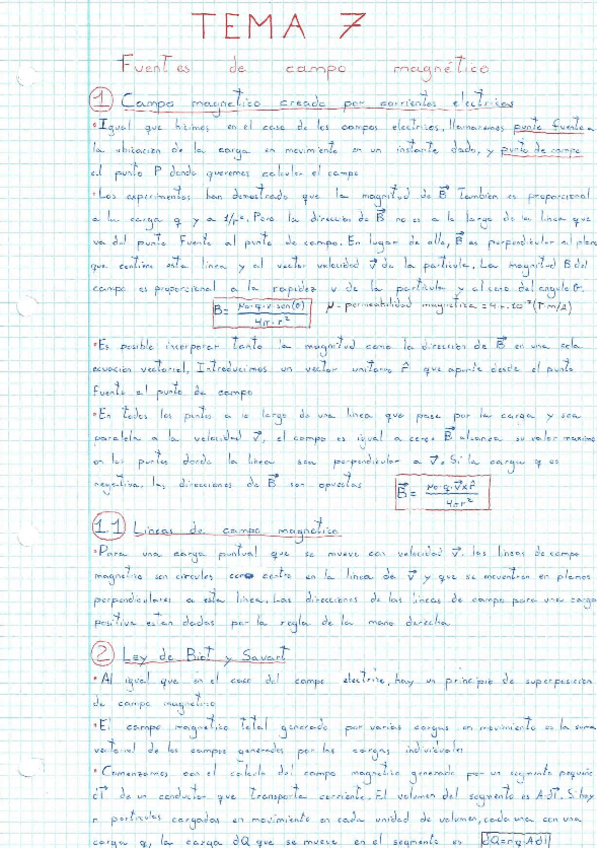 TEMA 7
Fuentes de campo magnético
1 Campo magnetico creado por corrientes electricas
• Igual que hicimos en el caso de los campos electricos, llamaremos punto fuente a
la ubicación de la carga en movimiento en un instante dado, y punto de campo
al punto P donde queremos calcular el campo
• Los experimentos han demostrado que la magnitud de B⃗ también es proporcional
a la carga q y a 1/r². Pero la direccion de B⃗ no es a lo largo de la linea que
va del punto Fuente al punto de campo. En lugar de ello, B⃗ es perpendicular al plano
que contiene esta linea y al vector velocidad v⃗ de la particula. La magnitud B del
campo es proporcional a la rapidez v de la particula y al seno del angulo θ.
B = μ₀·q·v·sen(θ) / 4π·r² μ - permeabilidad magnetica = 4π·10⁻⁷ (T·m/A)
• Es posible incorporar tanto la magnitud como la direccion de B⃗ en una sola
ecuación vectorial. Introducimos un vector unitario r̂ que apunta desde el punto
Fuente al punto de campo
• En todos los puntos a lo largo de una linea que pase por la carga y sea
paralela a la velocidad v⃗, el campo es igual a cero. B⃗ alcanza su valor maximo
en los puntos donde la linea sea perpendicular a v⃗. Si la carga q es
negativa, las direcciones de B⃗ son opuestas B⃗ = μ₀·q·v⃗×r̂ / 4πr²
1.1 Lineas de campo magnetico
• Para una carga puntual que se mueve con velocidad v⃗. las lineas de campo
magnetico son circulos centro en la linea de v⃗ y que se encuentran en planos
perpendiculares a esta linea. Las direcciones de las lineas de campo para una carga
positiva estan dadas por la regla de la mano derecha
2 Ley de Biot y Savart
• Al igual que en el caso del campo electrico, hay un principio de superposicion
de campo magnetico
• El campo magnetico total generado por varias cargas en movimiento es la suma
vectorial de los campos generados por las cargas individuales
• Comenzamos con el calculo del campo magnetico generado por un segmento pequeño
dl⃗ de un conductor que transporta corriente. El volumen del segmento es A·dl. Si hay
n particulas cargadas en movimiento en cada unidad de volumen, cada una con una
carga q, la carga dQ que se mueve en el segmento es dQ=n·q·A·dl